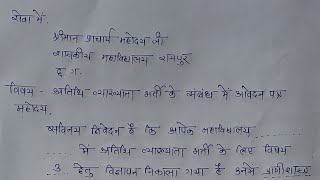 सेवा में.
श्रीमान प्राचार्य महोदय जी
शासकीय महाविद्यालय रायपुर
छ ग.
विषय - अतिथि व्याख्याता भर्ती के संबंध में आवेदन पत्र
महोदय.
सविनय निवेदन है कि आपके महाविद्यालय
में अतिथि व्याख्याता भर्ती के लिए विषय
3 हेतु विज्ञापन निकाला गया है उनमें